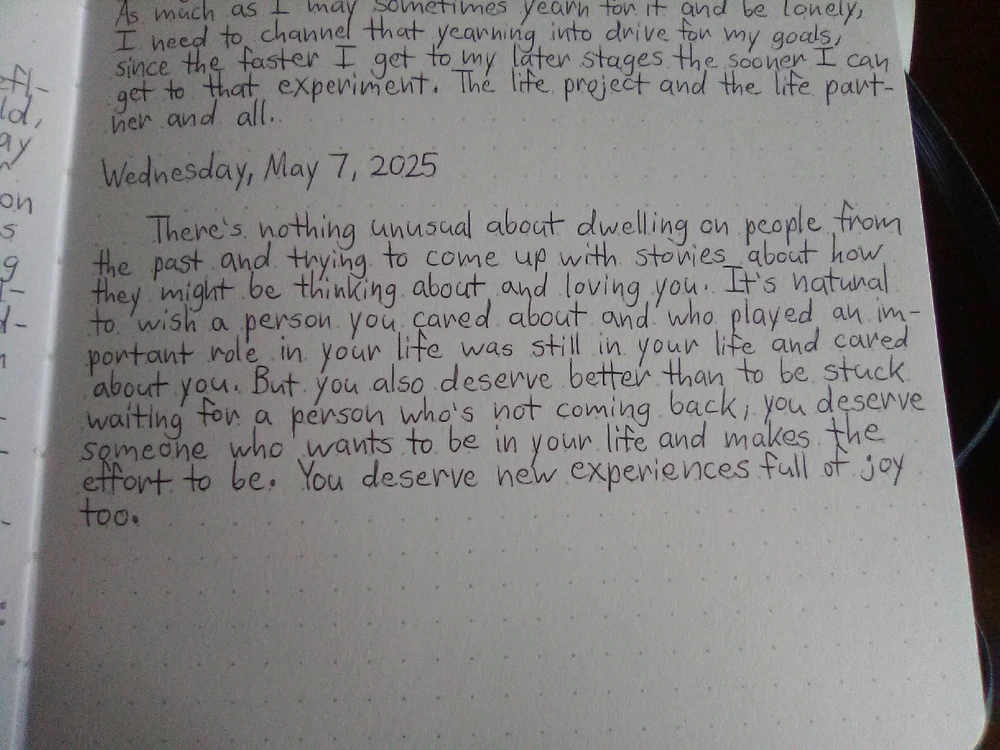 As much as I may sometimes yearn for it and be lonely,
I need to channel that yearning into drive for my goals,
since the faster I get to my later stages the sooner I can
get to that experiment. The life project and the life part-
ner and all.
Wednesday, May 7, 2025
There's nothing unusual about dwelling on people from
the past and trying to come up with stories about how
they might be thinking about and loving you. It's natural
to wish a person you cared about and who played an im-
portant role in your life was still in your life and cared
about you. But you also deserve better than to be stuck
waiting for a person who's not coming back; you deserve
someone who wants to be in your life and makes the
effort to be. You deserve new experiences full of joy
too.